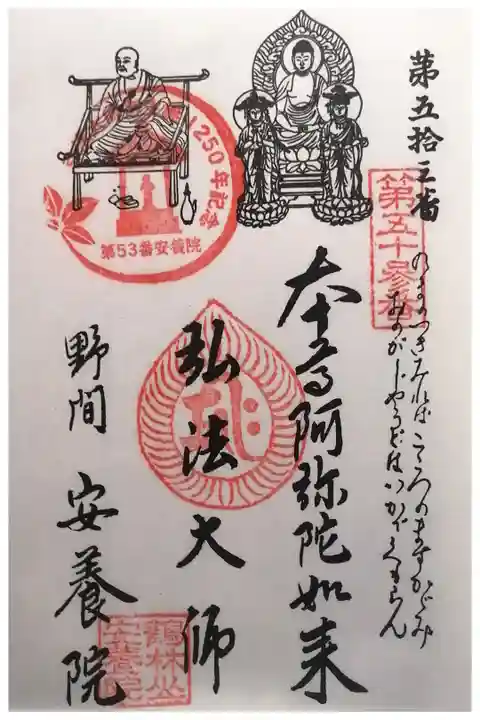 第五拾三番
第五十参番
のまのつきみれば こころのますかがみ
おのがじやうどはいかでくもらん
本尊阿弥陀如来
弘法大師
野間 安養院
1250年記念
第53番安養院
鶴林山
安養院